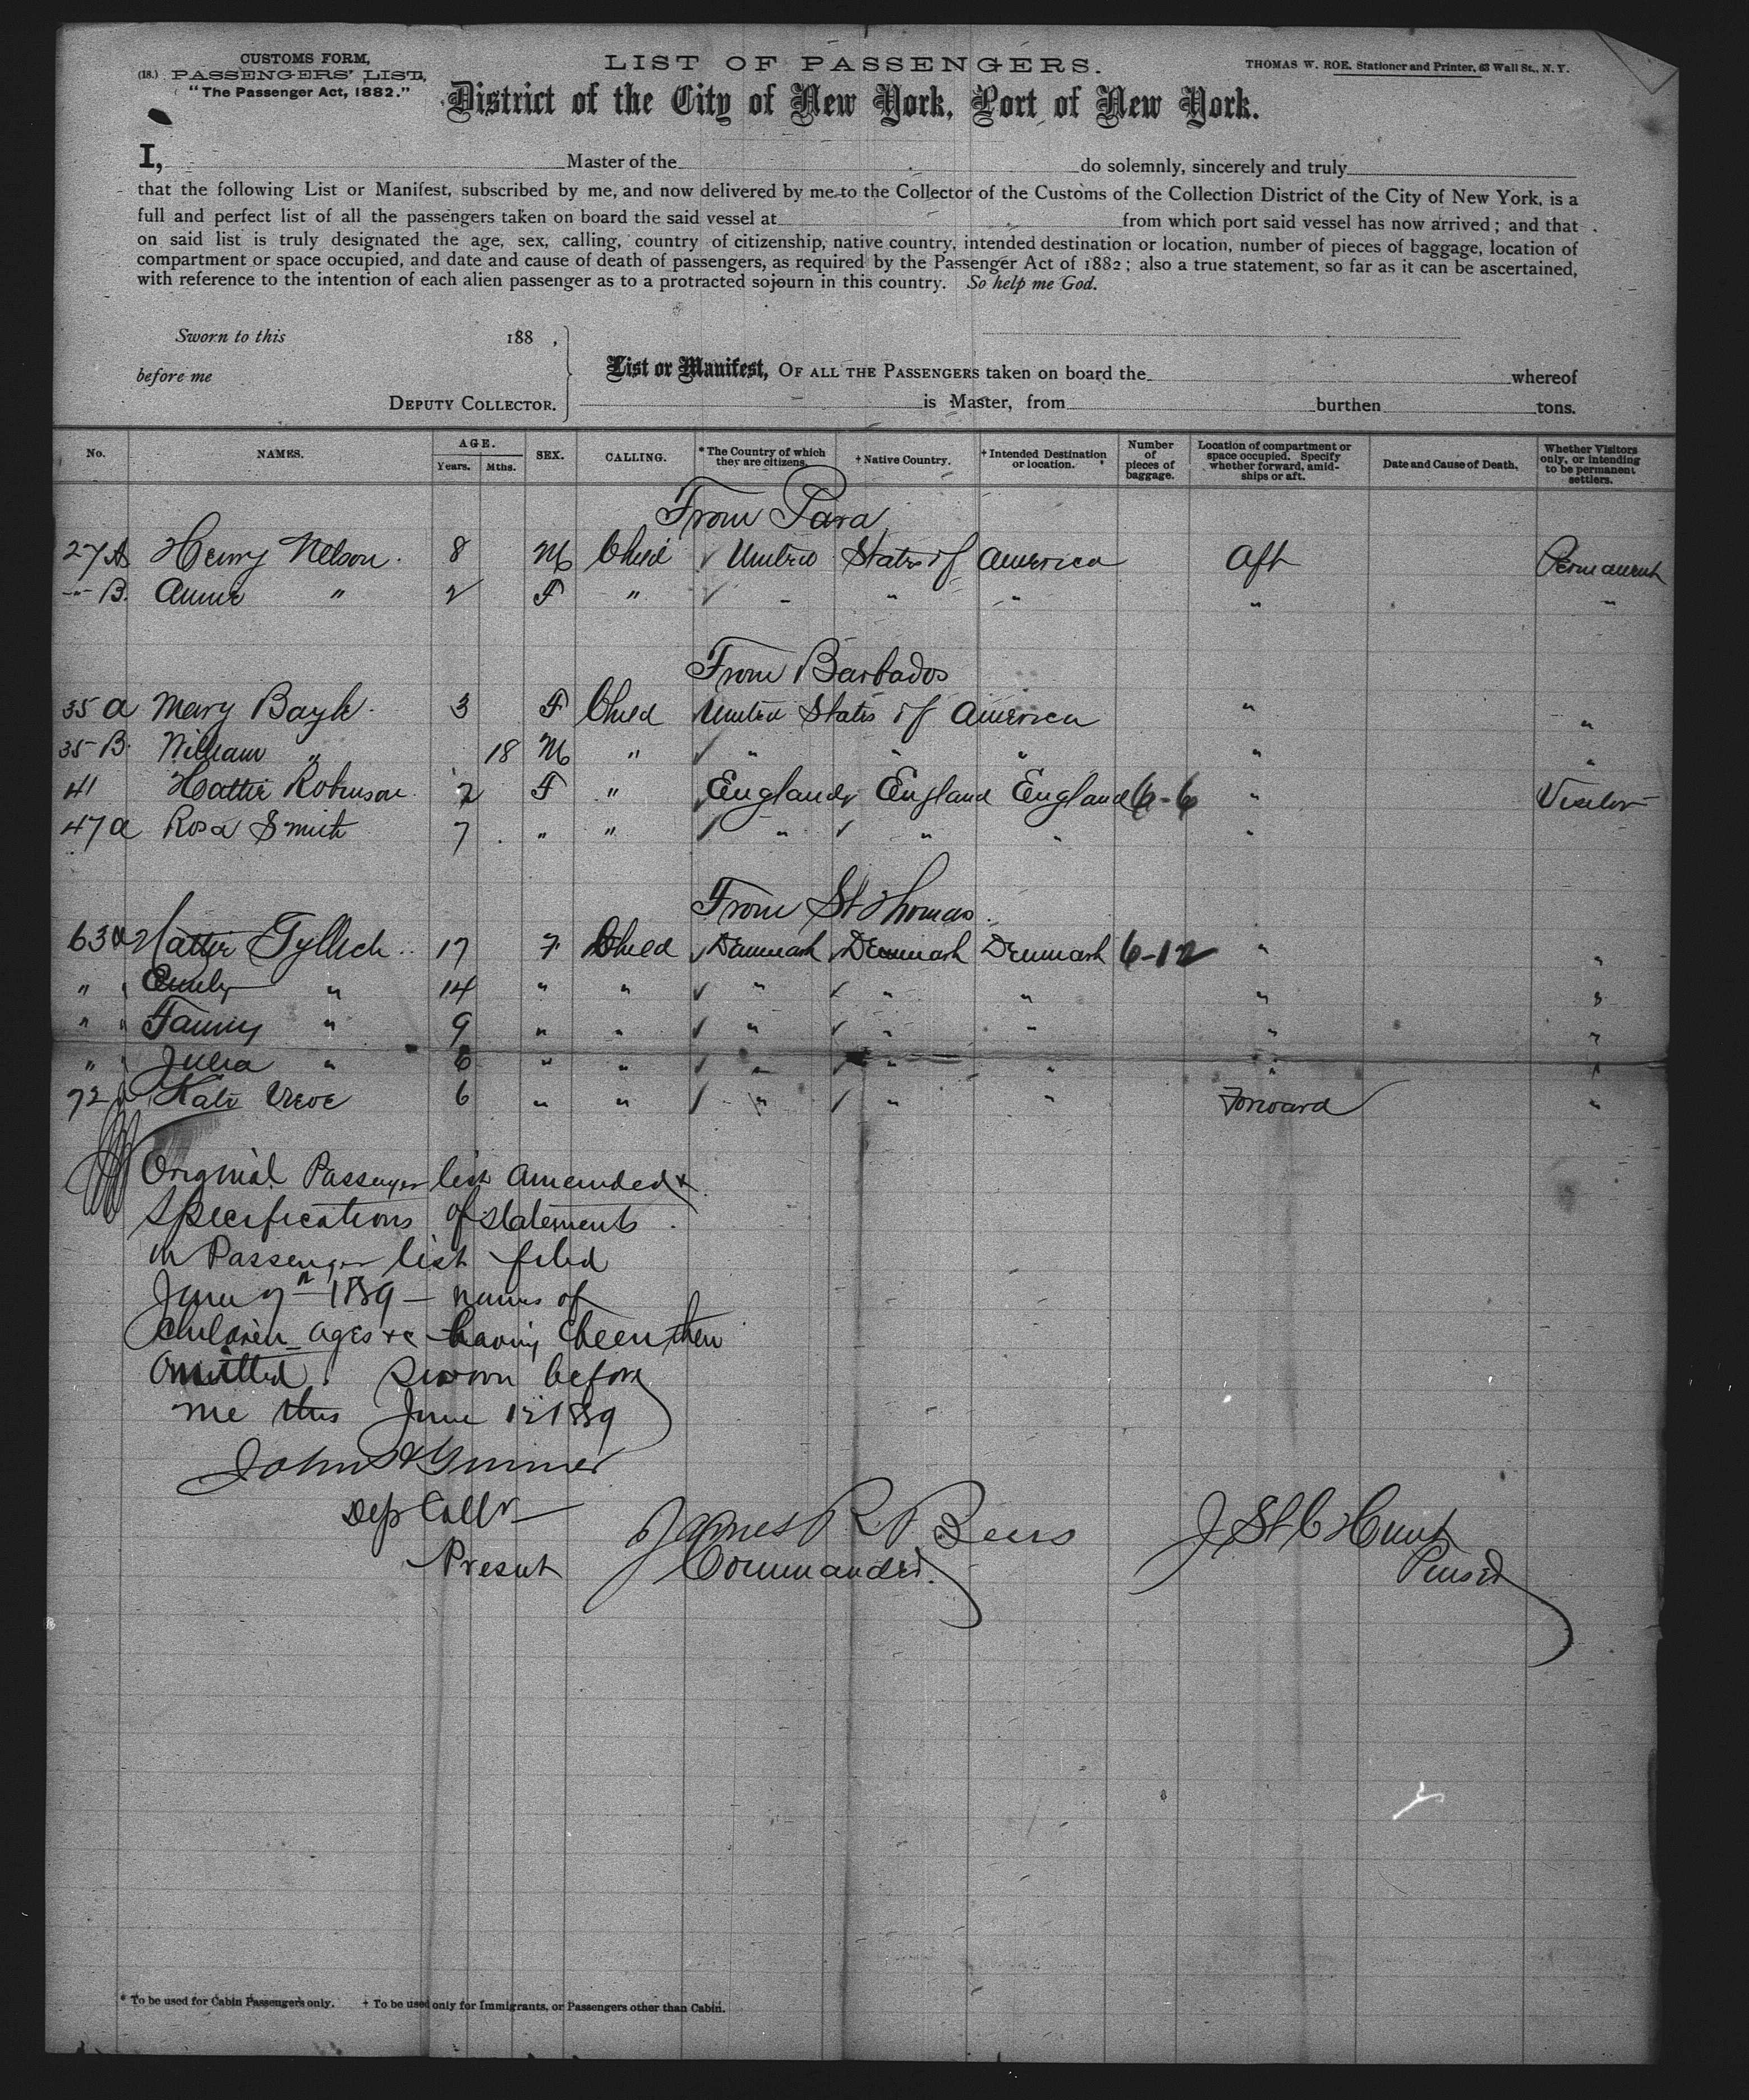 CUSTOMS FORM,
(18.) PASSENGERS' LIST,
"The Passenger Act, 1882."
LIST OF PASSENGERS.
THOMAS W. ROE, Stationer and Printer, 63 Wall St., N. Y.
District of the City of New York, Port of New York.
I, Master of the do solemnly, sincerely and truly
that the following List or Manifest, subscribed by me, and now delivered by me to the Collector of the Customs of the Collection District of the City of New York, is a
full and perfect list of all the passengers taken on board the said vessel at from which port said vessel has now arrived; and that
on said list is truly designated the age, sex, calling, country of citizenship, native country, intended destination or location, number of pieces of baggage, location of
compartment or space occupied, and date and cause of death of passengers, as required by the Passenger Act of 1882; also a true statement, so far as it can be ascertained,
with reference to the intention of each alien passenger as to a protracted sojourn in this country. So help me God.
Sworn to this 188 ,
before me
DEPUTY COLLECTOR.
List or Manifest, OF ALL THE PASSENGERS taken on board the whereof
is Master, from burthen tons.
No. NAMES. AGE. Years. Mths. SEX. CALLING. * The Country of which they are citizens. † Native Country. † Intended Destination or location. Number of pieces of baggage. Location of compartment or space occupied. Specify whether forward, amidships or aft. Date and Cause of Death. Whether Visitors only, or intending to be permanent settlers.
From Para
27 A Henry Nelson. 8 M Child ✓ United States of America Aft Permanent
" B. Annie " 2 F " ✓ " " " " "
From Barbados
35 a Mary Bayle. 3 F Child United States of America " "
35 B. William " 18 M " ✓ " " " " "
41 Hattie Robinson 2 F " England England England 6-6 " Visitor
47 a Rosa Smith 7 " " ✓ " ✓ " " "
From St Thomas.
63 a Hattie Tyllich 17 F Child ✓ Denmark ✓ Denmark Denmark 6-12 " "
" Emily " 14 " " ✓ " ✓ " " " "
" " Fanny " 9 " " ✓ " ✓ " " " "
" Julia " 6 " " ✓ " ✓ " " " "
72 Kate 6 " " ✓ " ✓ " " Forward "
Original Passenger list amended &
specifications of statements
in Passenger list filed
June 7th 1889 – names of
children ages &c having been then
omitted. Sworn before
me this June 12 1889
John
Dep Collr
Present
James R. Beers
Commander.
J St C Hunt
Purser
* To be used for Cabin Passengers only. † To be used only for Immigrants, or Passengers other than Cabin.